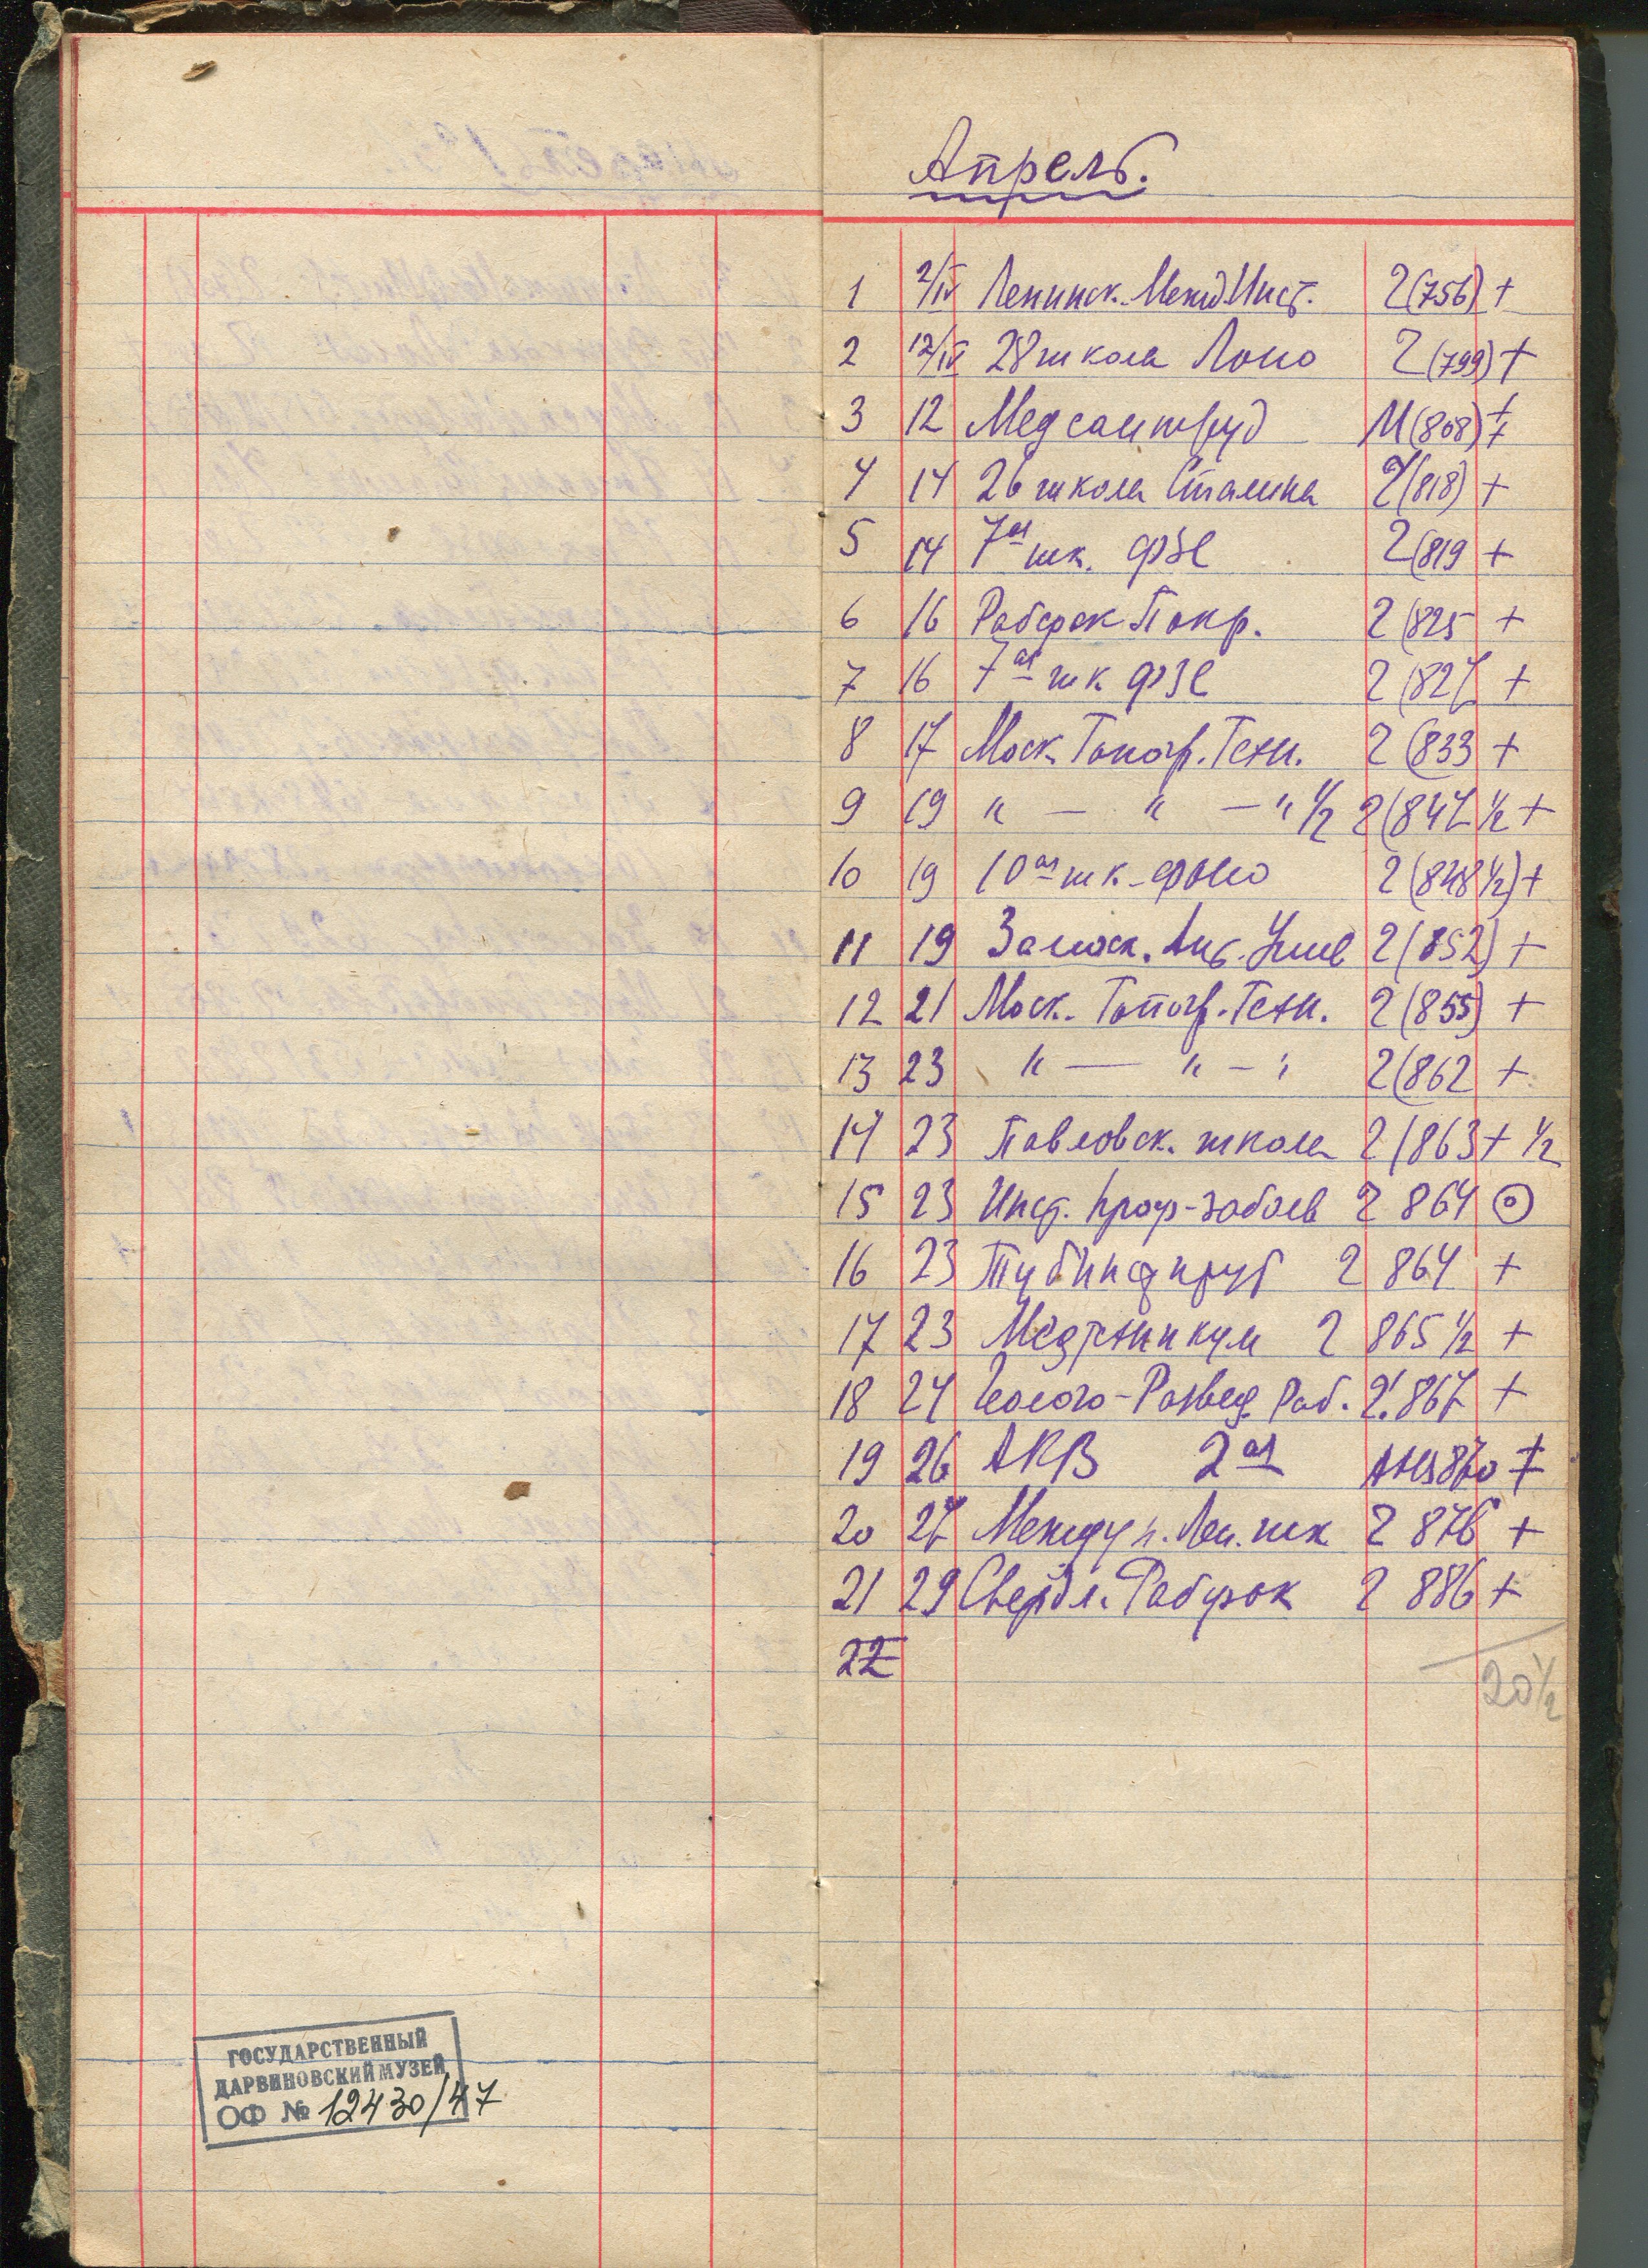 Апрель.
1 2/IV Ленинск. Межд. Инст. 2(756) +
2 12/IV 28 школа Ло​но 2(799) +
3 12 Медсантруд М(808) +
4 14 26 школа Сталина 2(818) +
5 14 7ая шк. ФЗС 2(819 +
6 16 Рабфак Покр. 2(825 +
7 16 7ая шк ФЗС 2(827 +
8 17 Моск. Топогр. Техн. 2(833 +
9 19 " — " — " 1/2 2(847 1/2 +
10 19 10ая шк. ФОНО 2(848 1/2) +
11 19 Замоск. 2(852) +
12 21 Моск. Топогр. Техн. 2(855) +
13 23 " — " — " 2(862 +
14 23 Павловск. школа 2(863 + 1/2
15 23 Инст. проф-забол​ев 2 864
16 23 2 864 +
17 23 Медтехникум 2 865 1/2 +
18 24 Геолого-Развед. Раб. 2 867 +
19 26 АКВ 2ая 870 +
20 27 Междун. Лен. шк 2 876 +
21 29 Свердл. Рабфак 2 886 +
22
20 1/2
ГОСУДАРСТВЕННЫЙ
ДАРВИНОВСКИЙ МУЗЕЙ
ОФ № 12430/47